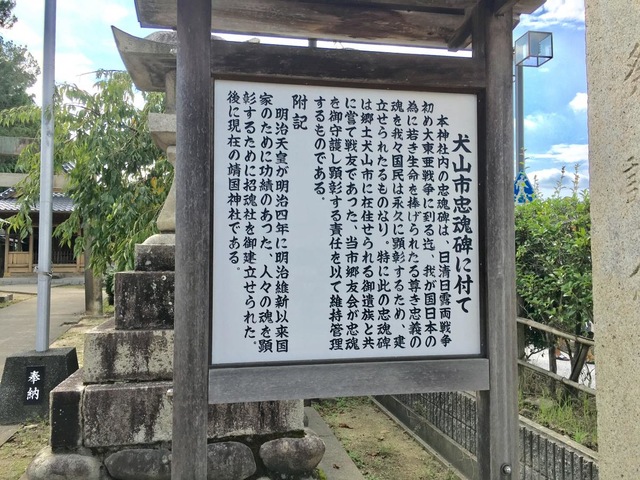 犬山市忠魂碑に付て
本神社内の忠魂碑は、日清日露両戦争
初め大東亜戦争に到る迄、我が国日本の
為に若き生命を捧げられたる尊き忠義の
魂を我々国民は永久に顕彰するため、建
立せられたるものなり。特に此の忠魂碑
は郷土犬山市に在住せられる御遺族と共
に嘗て戦友であつた、当市郷友会が忠魂
を御守護し顕彰する責任を以て維持管理
するものである。
附記
明治天皇が明治四年に明治維新以来国
家のために功績のあつた、人々の魂を顕
彰するために招魂社を御建立せられた。
後に現在の靖国神社である。
奉納